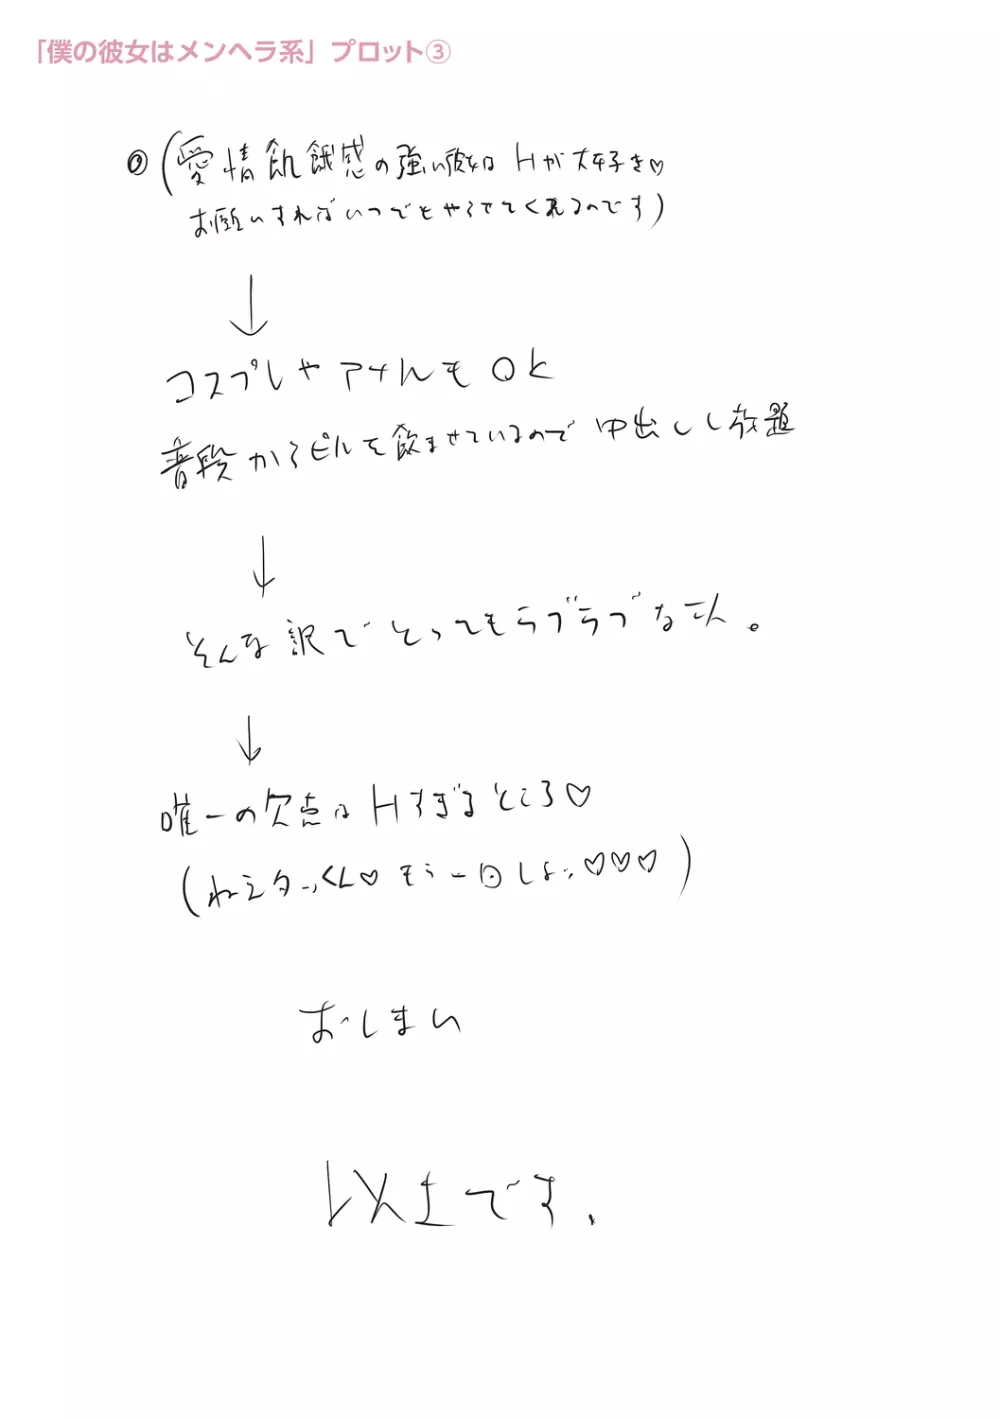 「僕の彼女はメンヘラ系」プロット③
(愛情飢餓感の強い彼女はHが大好き♡
お願いすればいつでもやらせてくれるのです)
↓
コスプレやアナルもOK
普段からピルを飲ませているので中出しし放題
↓
そんな訳でとってもラブラブな二人。
↓
唯一の欠点はHすぎるところ♡
(ねえタっくん♡もう一回しよ…♡♡♡)
おしまい
以上です.